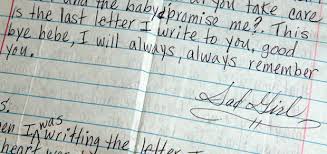 and the baby, promise me? This
is the last letter I write to you, good
bye bebe, I will always, always remember
you.
Sad Girl
S.
en I was writting the letter I
heart was